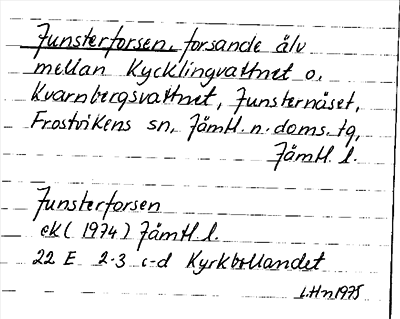 Junsterforsen, forsande älv
mellan Kycklingvattnet o.
Kvarnbergsvattnet, Junsternäset,
Frostvikens sn, Jämtl. n. doms. tg,
Jämtl. l.
Junsterforsen
ek ( 1974 ) Jämtl l.
22 E 2-3 c-d Kyrkbollandet
L.Hn 1975